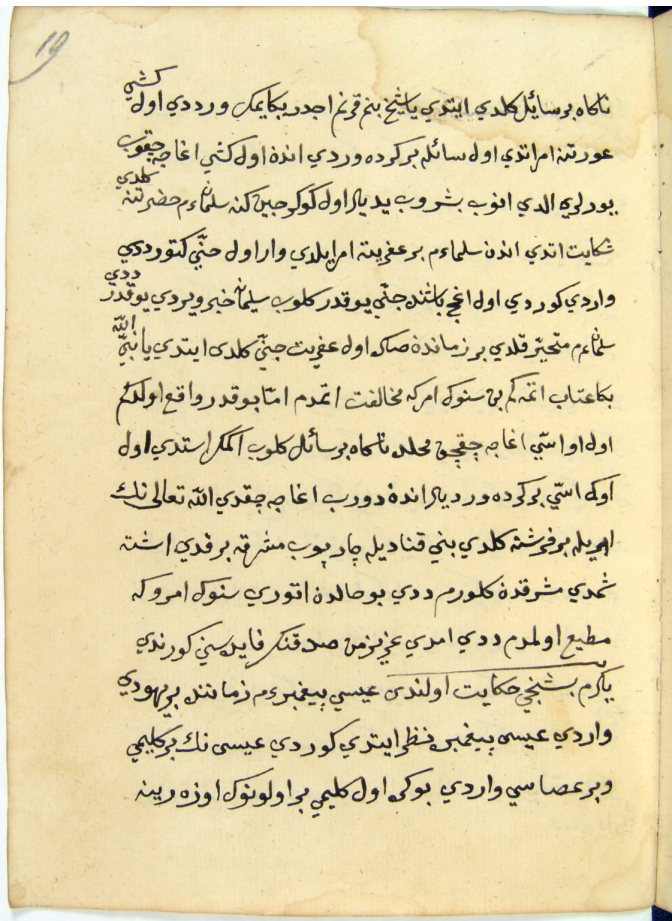 19
ناكاه برسائل كلدي ايتدي ياشيخ بنم قرنم اجدر بكا يمك وردي اول كشي
عورتنه امر اتدي اول سائله بر كرده وردي اندن اول كشي اغاجه چقوب
يورلري الدي انوب بشروب يديلر اول كوكرجين كنه سلمان عم حضرتنه كلدي
شكايت اتدي اندن سلمان عم بر عفريته امر ايلدي وار اول جنّي كتور ددي
واردي كوردي اول اغج باشنده جنّي يوقدر كلوب سليمانه خبر ويردي يوقدر ددي
سلمان عم متحيّر قلدي بر زماندن صكره اول عفريت جنّي كلدى ايتدي يا نبيّ الله
بكا عتاب اتمه كم بن سنوك امركه مخالفت اتمدم امّا بو قدر واقع اولدكم
اول او اسّي اغاجه چقيجق محلده ناكاه برسائل كلوب اكمك استدي اول
اوك اسّي بر كرده ورديلر اندن دورب اغاجه چقدي الله تعالى نك
امريله بر فرشته كلدي بني قناديله چارپوب مشرقه برقدي اشته
شمدي مشرقدن كلورم ددي بو حالدن اقوري سنوك امروكه
مطيع اولمدم ددي امدي عزيز من صدقنك فايده سني كورندي
يكرم بشنجي حكايت اولندى عيسي پيغمبر عم زماننده بر يهودي
واردي عيسى پيغمبره نظر ايتدي كوردي عيسى نك بر كليمي
وبر عصاسي واردي بوكره اول كليمي بر اولونوك اوزه رينه